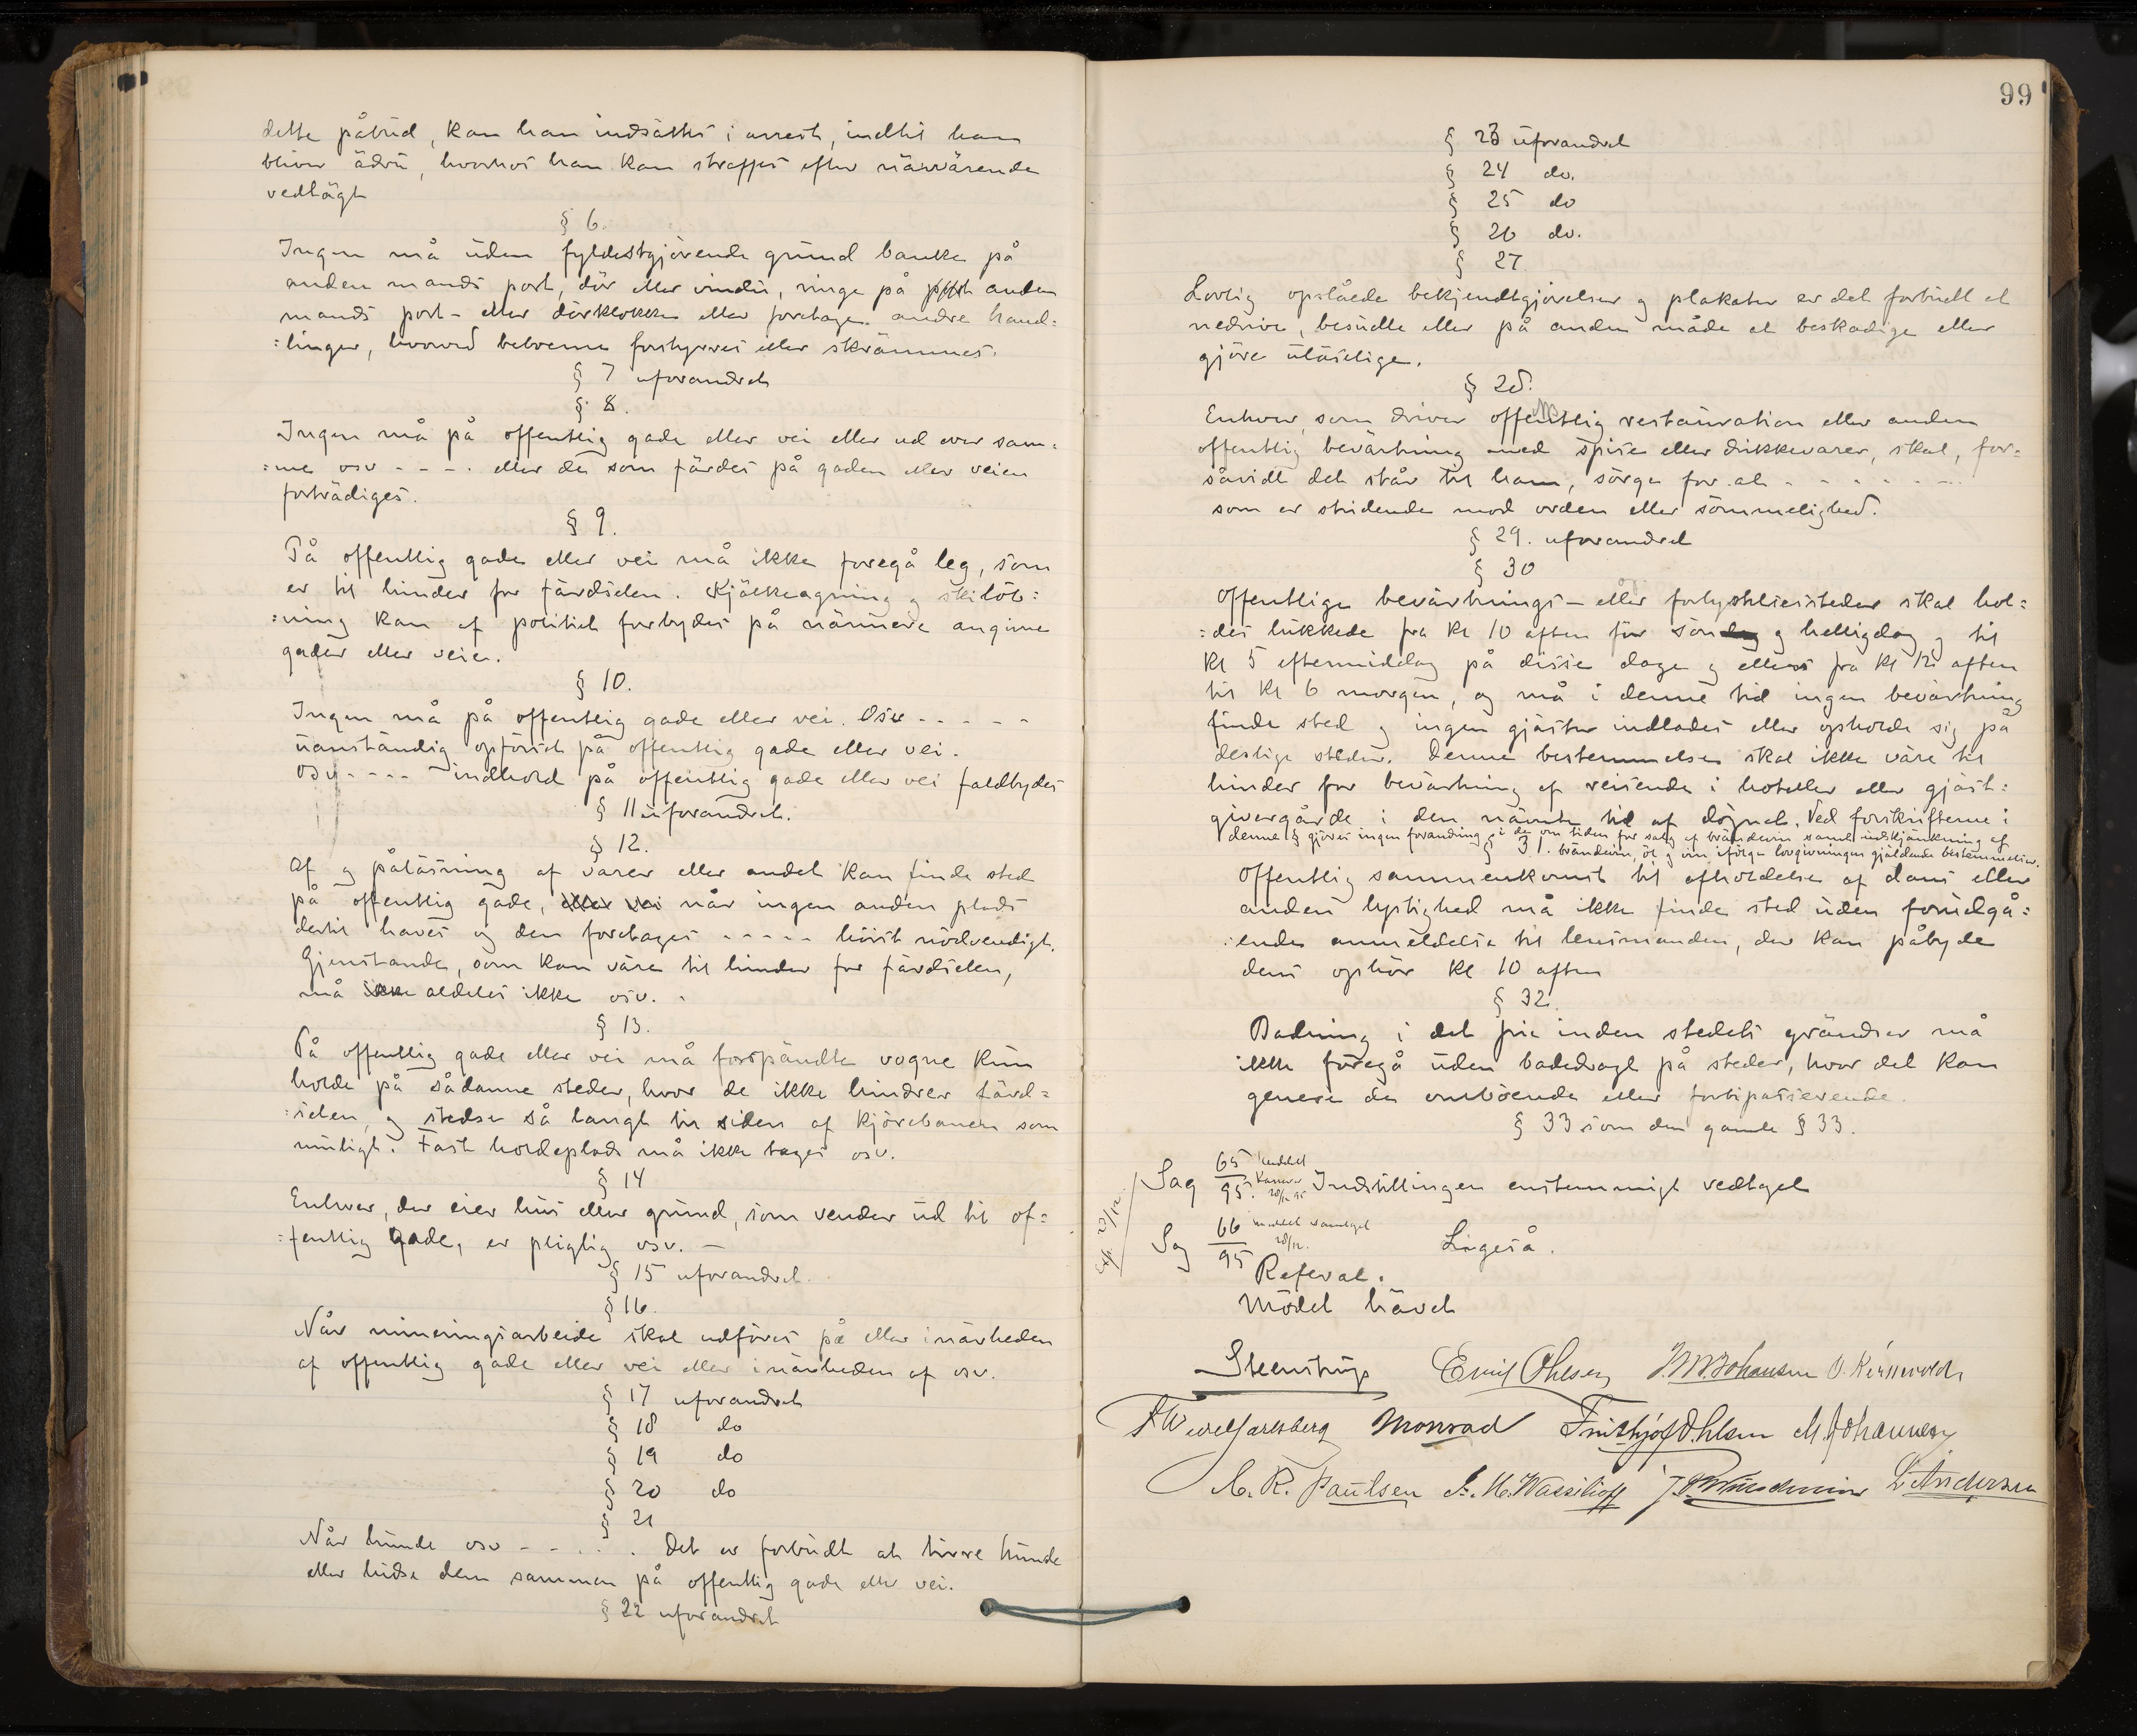 dette påbud, kan han indsättes i arrest, indtil han
bliver ädru, hvorhos han kan straffes efter närvärende
vedtägt
§ 6.
Ingen må uden fyldestgjörende grund banke på
anden mands port, dör eller vindu, ringe på anden
mands port- eller dörklokke eller foretage andre hand=
=linger, hvorved beboerne forstyrres eller skrämmes.
§ 7 uforandret
§ 8.
Ingen må på offentlig gade eller vei eller ud over sam=
=me osv - - - . eller de som färdes på gaden eller veien
forträdiges.
§ 9.
På offentlig gade eller vei må ikke foregå leg, som
er til hinder for färdselen. Kjälkeagning og skilöb=
=ning kan af politiet forbydes på närmere angivne
gader eller veie.
§ 10.
Ingen må på offentlig gade eller vei. Osv - - - - -
uanständig opförsel på offentlig gade eller vei.
osv - - - - indhold på offentlig gade eller vei faldbydes
§ 11 uforandret.
§ 12.
Af og pålásning af varer eller andet kan finde sted
på offentlig gade, eller vei når ingen anden plads
dertil haves og den foretages - - - - - höist nödvendigt.
Gjenstande, som kan väre til hinder for färdselen,
må ikke aldeles ikke osv. .
§ 13.
På offentlig gade eller vei må forspändte vogne kun
holde på sådanne steder, hvor de ikke hindrer färd=
=selen, og stedse så langt til siden af kjörebanen som
muligt. Fast holdeplads må ikke tages osv.
§ 14
Enhver, der eier hus eller grund, som vender ud til of=
=fentlig gade, er pligtig osv. —
§ 15 uforandret.
§ 16.
Når mineringsarbeide skal udföres på eller i närheden
af offentlig gade eller vei eller i närheden af osv.
§ 17 uforandret
§ 18 do
§ 19 do
§ 20 do
§ 21
Når hunde osv - - . . . Det er forbudt at tirre hunde
eller hidse dem sammen på offentlig gade eller vei.
§ 22 uforandret
99
§ 23 uforandret
§ 24 do.
§ 25 do
§ 26 do.
§ 27.
Lovlig opslåede bekjendtgjörelser og plakater er det forbudt at
nedrive, besudle eller på anden måde at beskadige eller
gjöre uläselige.
§ 28.
Enhver, som driver offentlig restauration eller anden
offentlig bevärtning med spise eller drikkevarer, skal, for=
såvidt det står til ham, sörge for at - - - - - - -
som er stridende mod orden eller sömmelighed.
§ 29. uforandret
§ 30
Offentlige bevärtnings- eller forlystelsessteder skal hol=
=des lukkede fra kl 10 aften för söndag og helligdag og til
kl 5 eftermiddag på disse dage og ellers fra kl 12 aften
til kl 6 morgen, og må i denne tid ingen bevärtning
finde sted og ingen gjäster indlades eller opholde sig på
deslige steder. Denne bestemmelse skal ikke väre til
hinder for bevärtning af reisende i hoteller eller gjäst=
givergårde i den nämnte tid af dögnet. Ved forskrifterne i
denne § gjöres ingen forandring i de om tiden for salg af brändevin samt udskjänkning af
brändevin, öl og vin ifölge lovgivningen gjäldende bestemmelser.
§ 31.
Offentlig sammenkomst til afholdelse af dans eller
anden lystighed må ikke finde sted uden forudgå=
=ende anmeldelse til lensmanden, der kan påbyde
dens ophör kl 10 aften
§ 32.
Badning i det frie inden stedets gründser må
ikke foregå uden badedragt på steder, hvor det kan
genere de omboende eller forbipasserende.
§ 33 som den gamle § 33.
Sag 65/95. Indstillingen enstemmigt vedtaget
Sag 66/95 Ligeså.
28/12.
Referat.
Mödet hävet
Steenstrup Emil Ohlsen J. M. Johansen O. Kirkevold
F Wedel Jarlsberg Monrad Frithjof Ohlsen M. Johannesen
C. R. Paulsen J. M. Wassilioff L Andersen